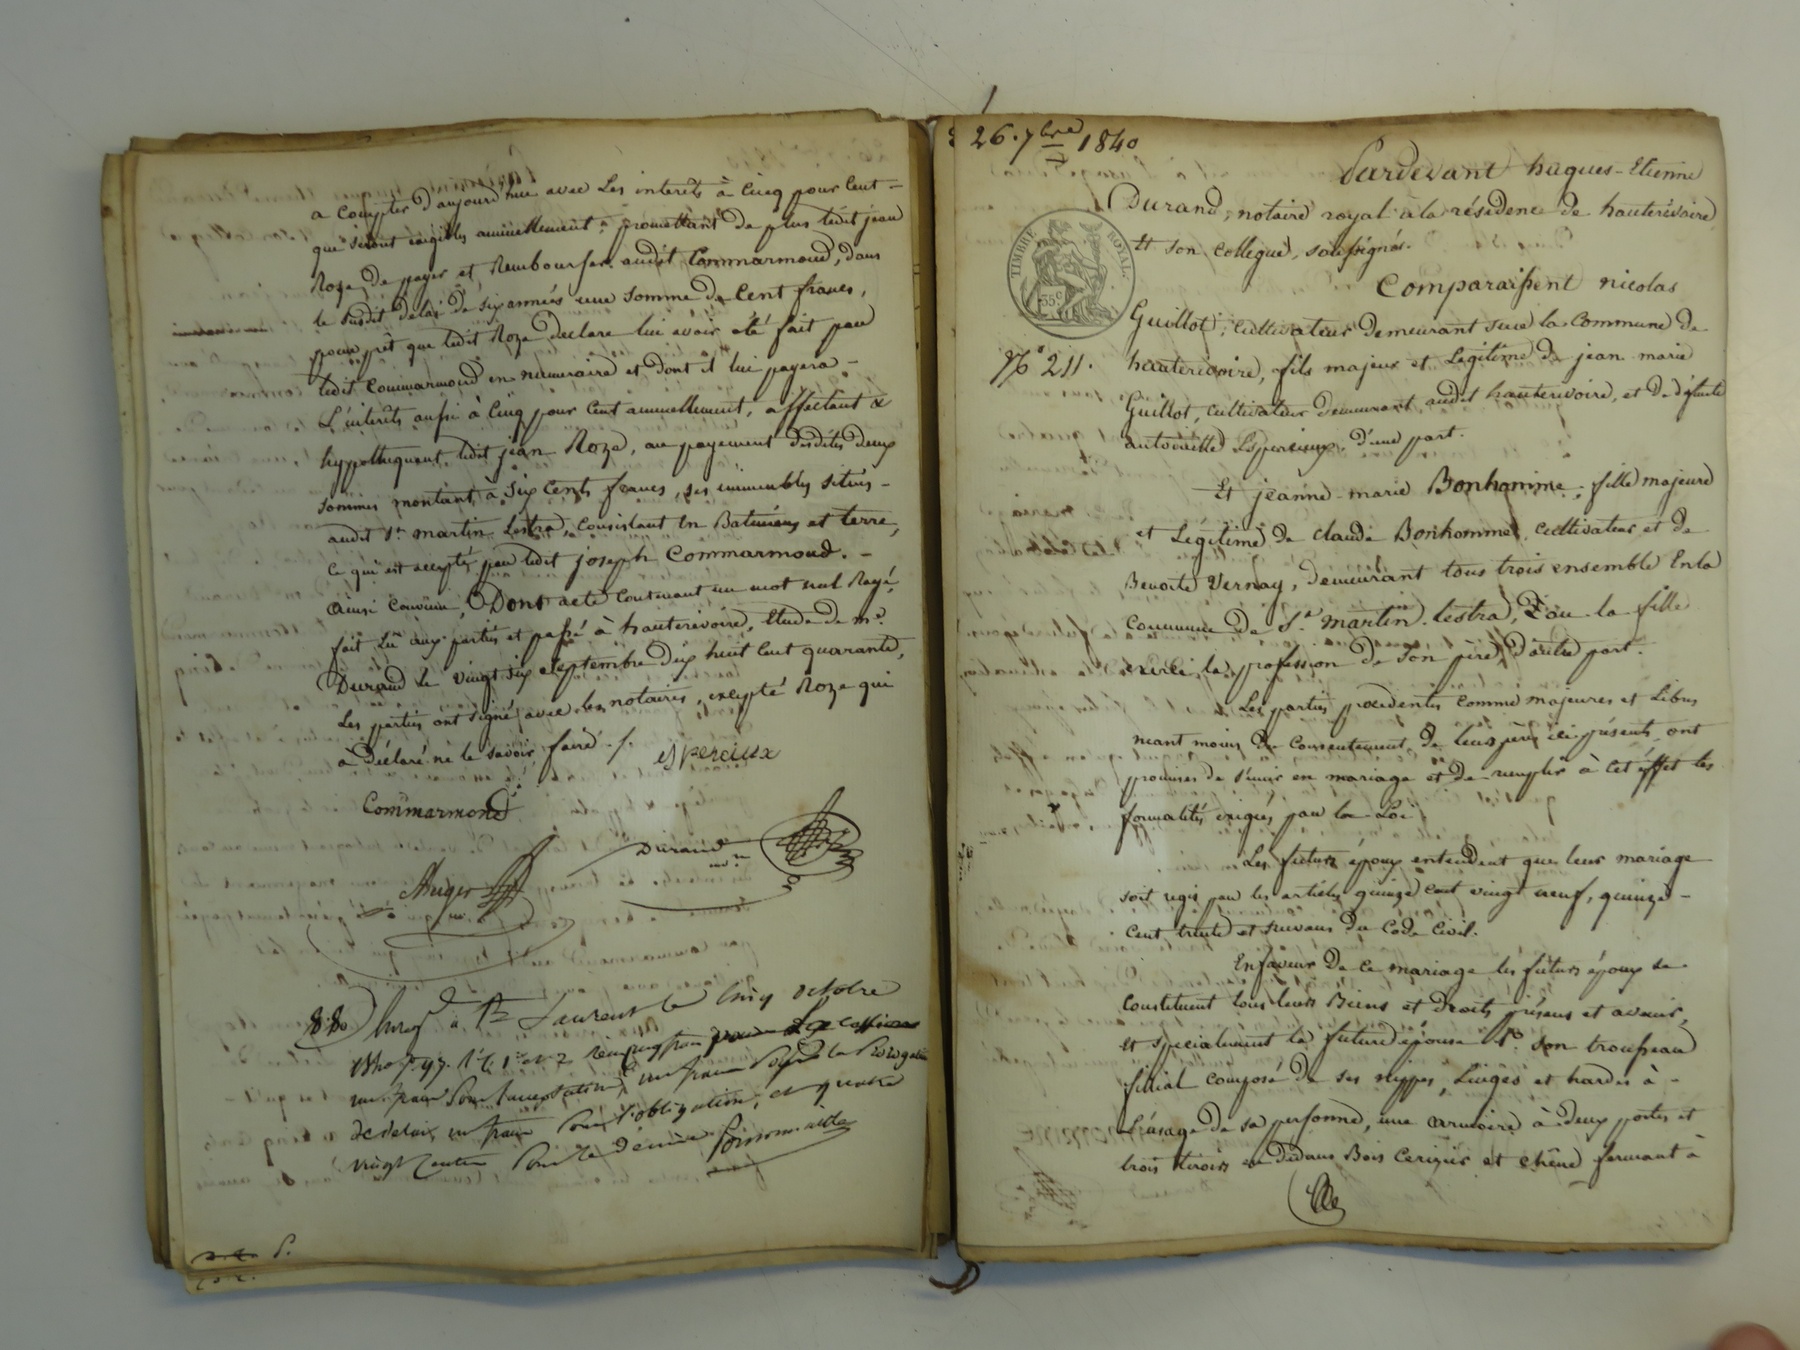 a compter d'aujourd'hui avec les interêts à Cinq pour Cent -
qui seront exigibles annuellement; promettant de plus ledit jean
Roze de payer et Rembourser audit Commarmond, dans
le susdit delai de six années une somme de Cent francs,
pour prêt que ledit Roze declare lui avoir été fait par
ledit Commarmond en numeraire et dont il lui payera -
L'interêts aussi à Cinq pour Cent annuellement, affectant &
hyppothequant ledit jean Roze, au payement desdites deux
sommes montant à Six Cents francs, ses immeubles situés -
audit St martin Lestra, Consistant en Batimens et terre,
ce qui est accepté par ledit joseph Commarmond. -
Ainsi convenu, Dont acte contenant un mot nul Rayé,
fait Lû aux parties et passé à hauterivoire, Etude de me.
Durand le vingt six Septembre dix huit cent quarante,
Les parties ont signé avec les notaires, excepté Roze qui
à Déclaré ne le savoir faire ./.
Espercieux
Commarmond
Durand
Auger
88 Enregé à St Laurent le Cinq octobre
1840 fo 97. Ro C 1re et 2
un franc pour l'acceptation, un franc pour la Prorogation
de délai, un franc pour l'obligation, et quatre
vingt Centimes pour le décime
P.
26. 7bre 1840
Pardevant hugues-Etienne
Durand, notaire royal à la résidence de hauterivoire,
Et son collegue, soussignés.
TIMBRE ROYAL.
35c
Comparaissent nicolas
Guillot, cultivateur demeurant sur la Commune de
No 211.
hauterivoire, fils majeur et Légitime de jean marie
Guillot, cultivateur demeurant audit hauterivoire, et de défunte
antoinette Espercieux, d'une part.
Et jeanne-marie Bonhomme, fille majeure
et Légitime de claude Bonhomme cultivateur et de
Benoite Vernay, demeurant tous trois ensemble En la
Commune de St. martin lestra, où la fille
exerce la profession de son père, d'autre part.
Les parties procedentes comme majeures et Libres
néant moins du Consentement de leurs pères ici présents ont
promises de s'unir en mariage et de remplir à cet éffet les
formalités exigées par la Loi
Les futurs époux entendent que leur mariage
soit régis par les articles quinze cent vingt neuf, quinze -
cent trente et suivans du Code Civil.
En faveur de ce mariage les futurs époux se
Constituent tous leurs Biens et droits présens et avenir,
et spécialement la future épouse 1o. son trousseau
filial composé de ses nippes, Linges et hardes à -
L'usage de sa personne, une armoire à deux portes et
trois tiroirs en dedans Bois Cerizier et chêne fermant à